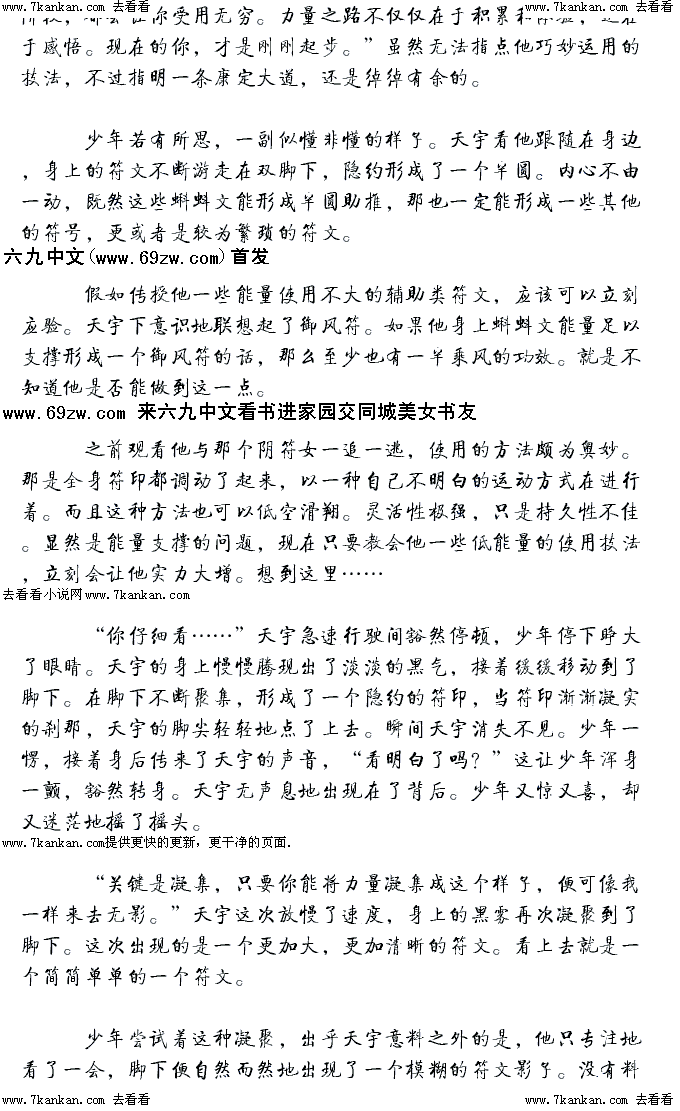 www.7kankan.com 去看看 www.7kankan.com 去看看
你受用无穷。力量之路不仅仅在于积累和
于感悟。现在的你，才是刚刚起步。”虽然无法指点他巧妙运用的
技法，不过指明一条康定大道，还是绰绰有余的。
少年若有所思，一副似懂非懂的样子。天宇看他跟随在身边
，身上的符文不断游走在双脚下，隐约形成了一个半圆。内心不由
一动，既然这些蝌蚪文能形成半圆助推，那也一定能形成一些其他
的符号，更或者是较为繁琐的符文。
六九中文(www.69zw.com)首发
假如传授他一些能量使用不大的辅助类符文，应该可以立刻
应验。天宇下意识地联想起了御风符。如果他身上蝌蚪文能量足以
支撑形成一个御风符的话，那么至少也有一半乘风的功效。就是不
知道他是否能做到这一点。
www.69zw.com 来六九中文看书进家园交同城美女书友
之前观看他与那个阴符女一追一逃，使用的方法颇为奥妙。
那是全身符印都调动了起来，以一种自己不明白的运动方式在进行
着。而且这种方法也可以低空滑翔。灵活性极强，只是持久性不佳
。显然是能量支撑的问题，现在只要教会他一些低能量的使用技法
，立刻会让他实力大增。想到这里……
去看看小说网www.7kankan.com
“你仔细看……”天宇急速行驶间豁然停顿，少年停下睁大
了眼睛。天宇的身上慢慢腾现出了淡淡的黑气，接着缓缓移动到了
脚下。在脚下不断聚集，形成了一个隐约的符印，当符印渐渐凝实
的刹那，天宇的脚尖轻轻地点了上去。瞬间天宇消失不见。少年一
愣，接着身后传来了天宇的声音，“看明白了吗？”这让少年浑身
一颤，豁然转身。天宇无声息地出现在了背后。少年又惊又喜，却
又迷茫地摇了摇头。
www.7kankan.com提供更快的更新，更干净的页面.
“关键是凝集，只要你能将力量凝集成这个样子，便可像我
一样来去无影。”天宇这次放慢了速度，身上的黑雾再次凝聚到了
脚下。这次出现的是一个更加大，更加清晰的符文。看上去就是一
个简简单单的一个符文。
少年尝试着这种凝聚，出乎天宇意料之外的是，他只专注地
看了一会，脚下便自然而然地出现了一个模糊的符文影子。没有料
www.7kankan.com 去看看 www.7kankan.com 去看看